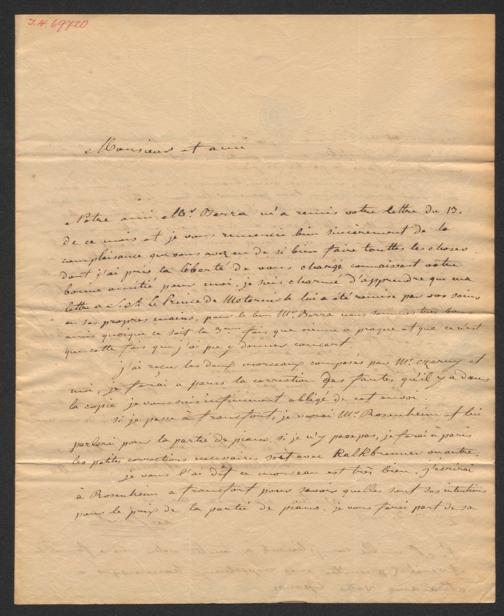 I.N. 69720
Monsieur et ami
Notre ami Mr. Berra m'a remis votre lettre du 13.
de ce mois et je vous remercie bien sincèrement de la
complaisance que vous avez eu de si bien faire touttes les choses
dont j'ai pris la liberté de vous chargé connaissant votre
bonne amitié pour moi, je suis charmé d'apprendre que ma
lettre a S. A. le Prince de Metternich lui a été remise par vos soins
en ses propres mains, pour le bon Mr. Berra nous sommes très bons
amis quoique ce soit la 3me fois que vienne a prague et que ce n'est
que cette fois que j'ai pu y donner concert.
j'ai reçu les deux morceaux composés par Mr. Czerny et
moi, je ferai a paris la correction des fautes qu'il y a dans
la copie je vous suis infiniment obligé de cet envoi
si je passe à francfort, je verrai Mr. Rosenheim et lui
parlerai pour la partie de piano, si je n'y passe pas, je ferai à paris
les petites corrections necessaires soit avec Kalkbrenner ou autre.
je vous l'ai dit ce morceau est très bien. j'ecrirai
à Rosenheim a francfort pour savoir quelles sont ses intentions
pour le prix de la partie de piano. je vous ferai part de sa